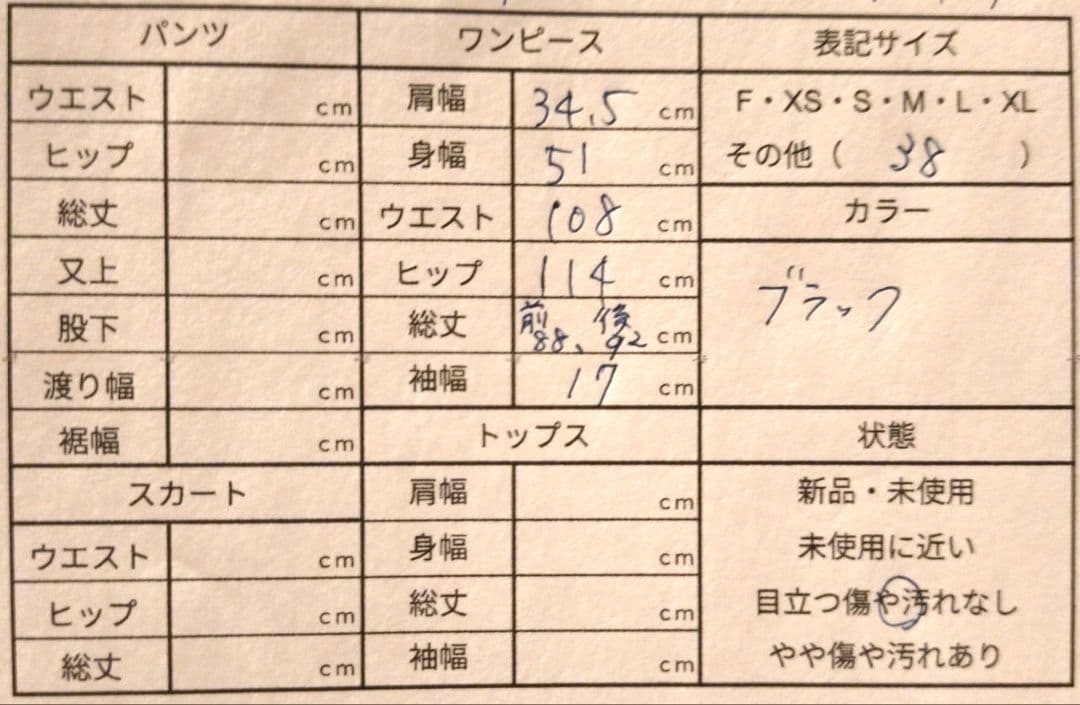 パンツ
ウエスト cm
ヒップ cm
総丈 cm
又上 cm
股下 cm
渡り幅 cm
裾幅 cm
スカート
ウエスト cm
ヒップ cm
総丈 cm
ワンピース
肩幅 34.5 cm
身幅 51 cm
ウエスト 108 cm
ヒップ 114 cm
総丈 前88、後92 cm
袖幅 17 cm
トップス
肩幅 cm
身幅 cm
総丈 cm
袖幅 cm
表記サイズ
F・XS・S・M・L・XL
その他（ 38 ）
カラー
ブラック
状態
新品・未使用
未使用に近い
目立つ傷や汚れなし
やや傷や汚れあり